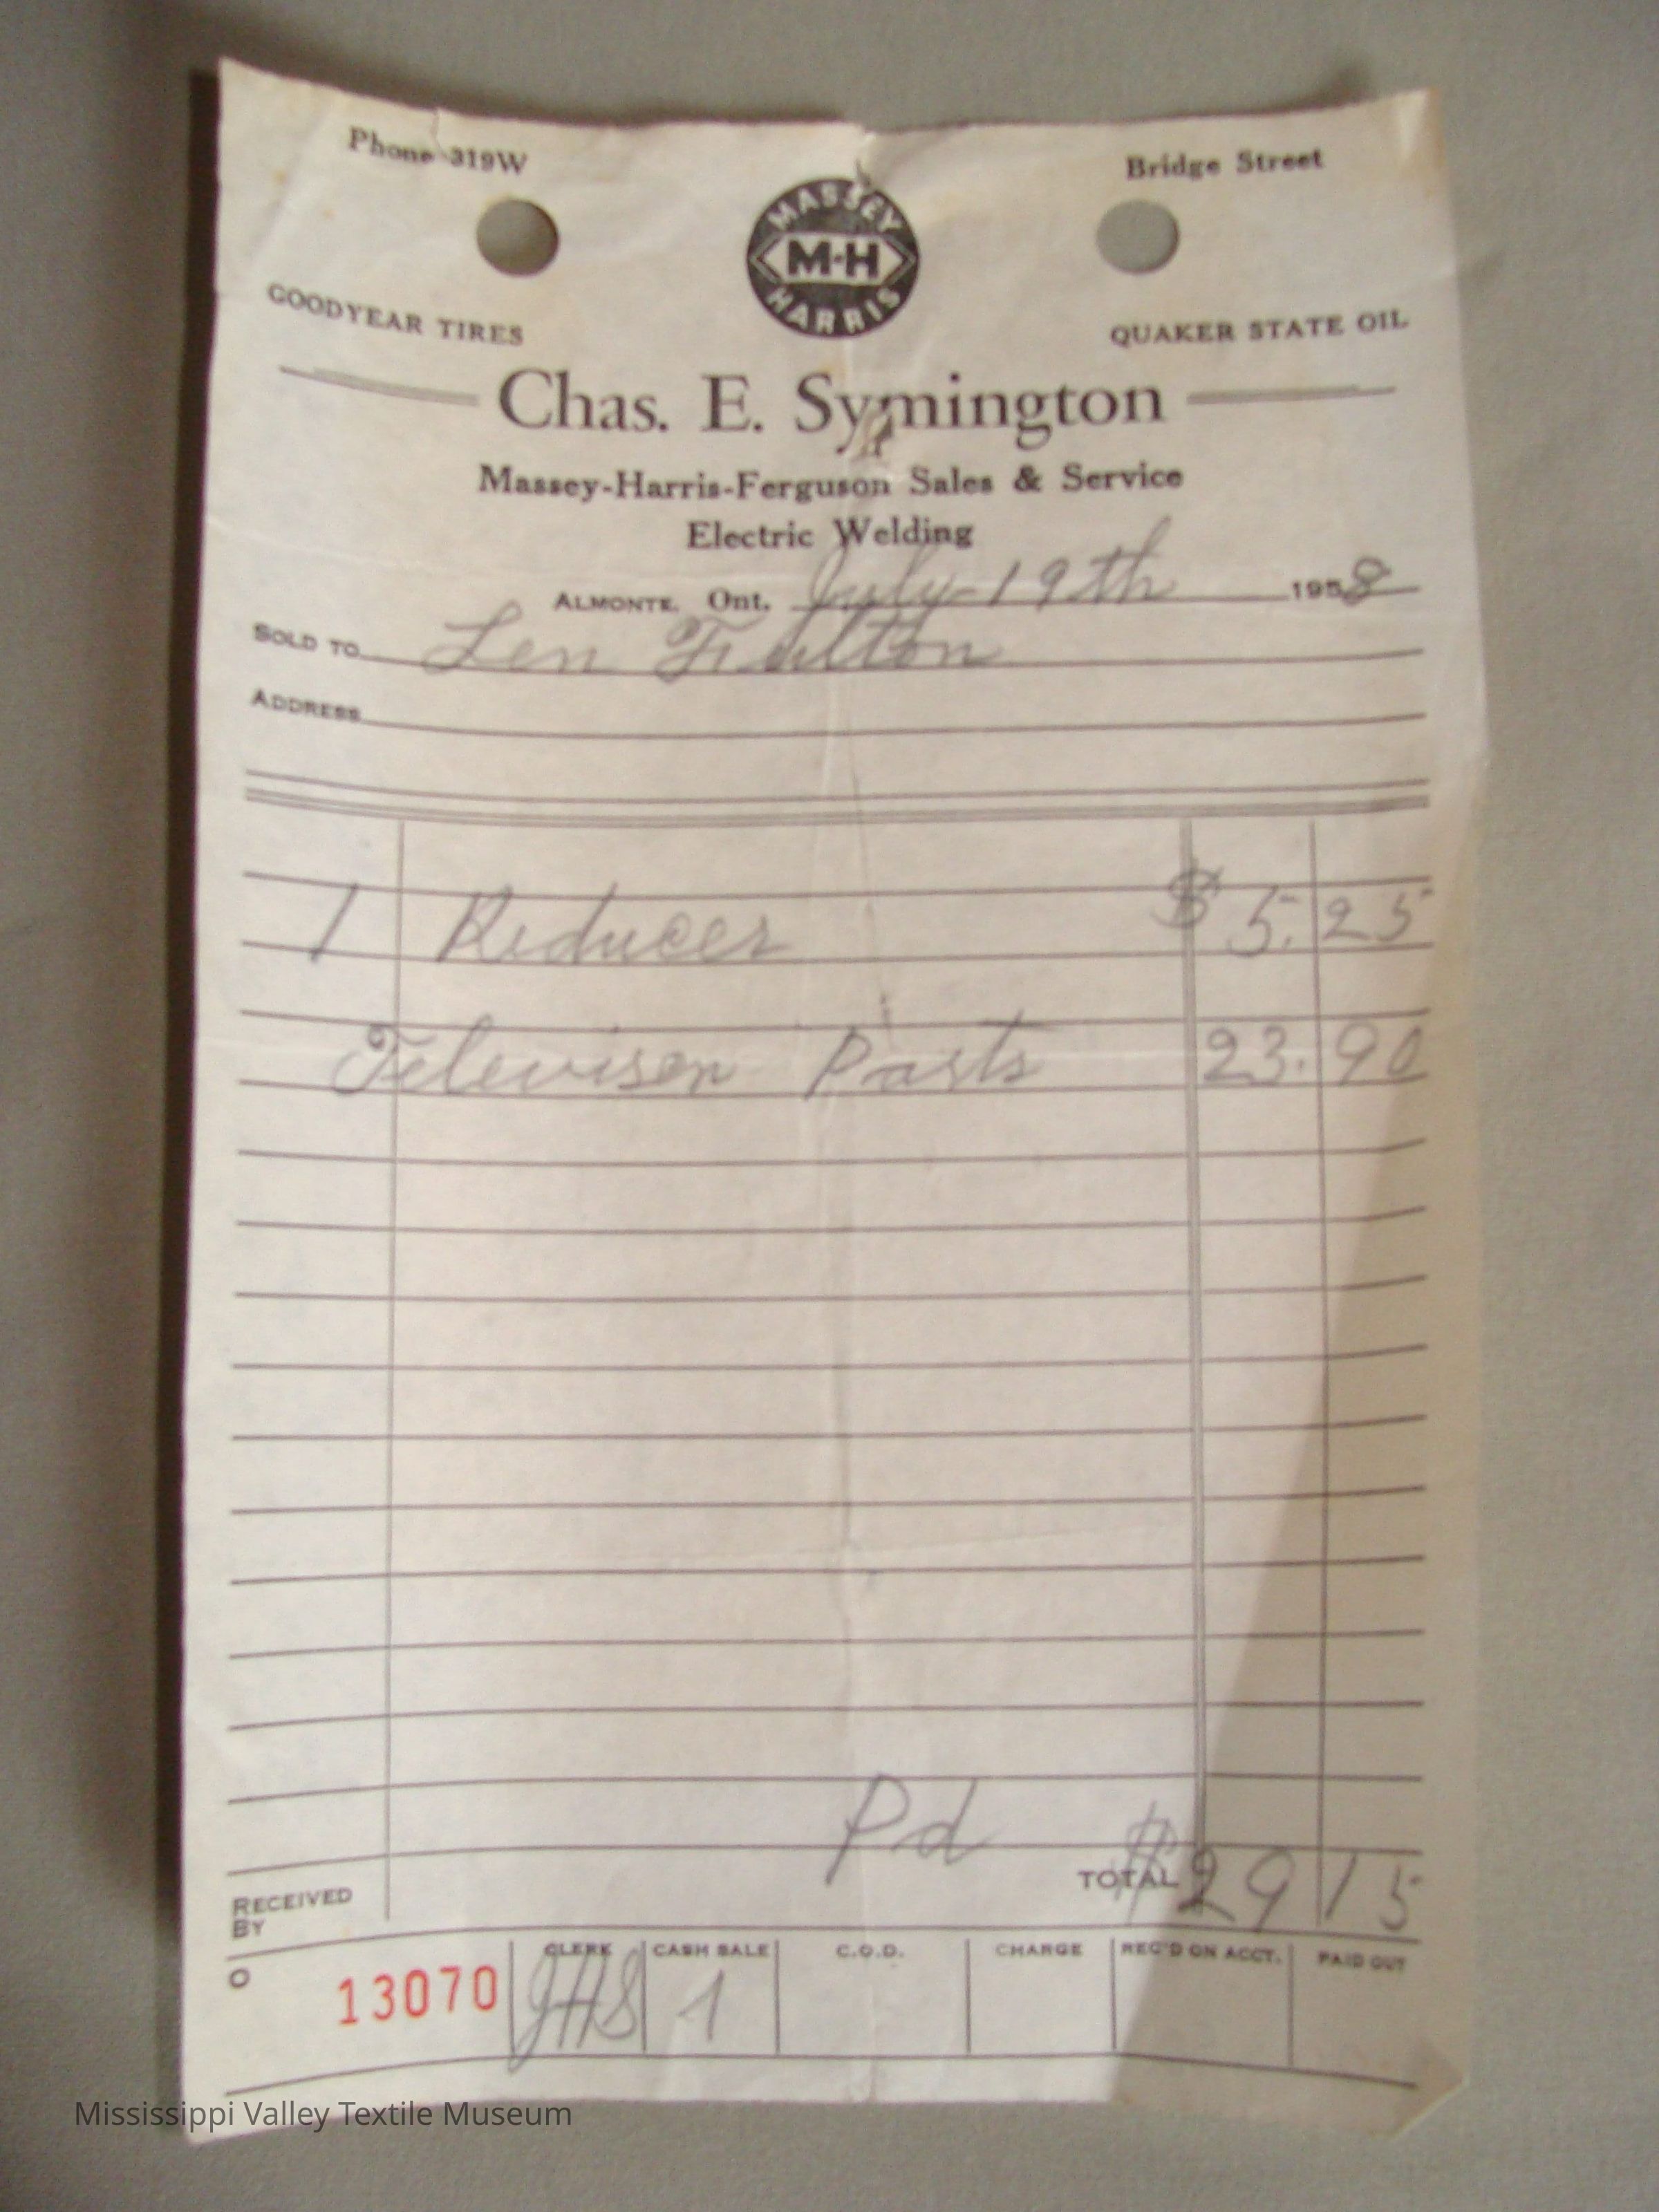 Phone 319W
Bridge Street
MASSEY
M-H
HARRIS
GOODYEAR TIRES
QUAKER STATE OIL
Chas. E. Symington
Massey-Harris-Ferguson Sales & Service
Electric Welding
ALMONTE, Ont. July 19th 1958
SOLD TO Len Fulton
ADDRESS
1 Reducer $ 5.25
Televisen Parts 23.90
Pd
TOTAL $29 15
RECEIVED
BY
CLERK CASH SALE C.O.D. CHARGE REC'D ON ACCT. PAID OUT
O 13070 JHS 1
Mississippi Valley Textile Museum